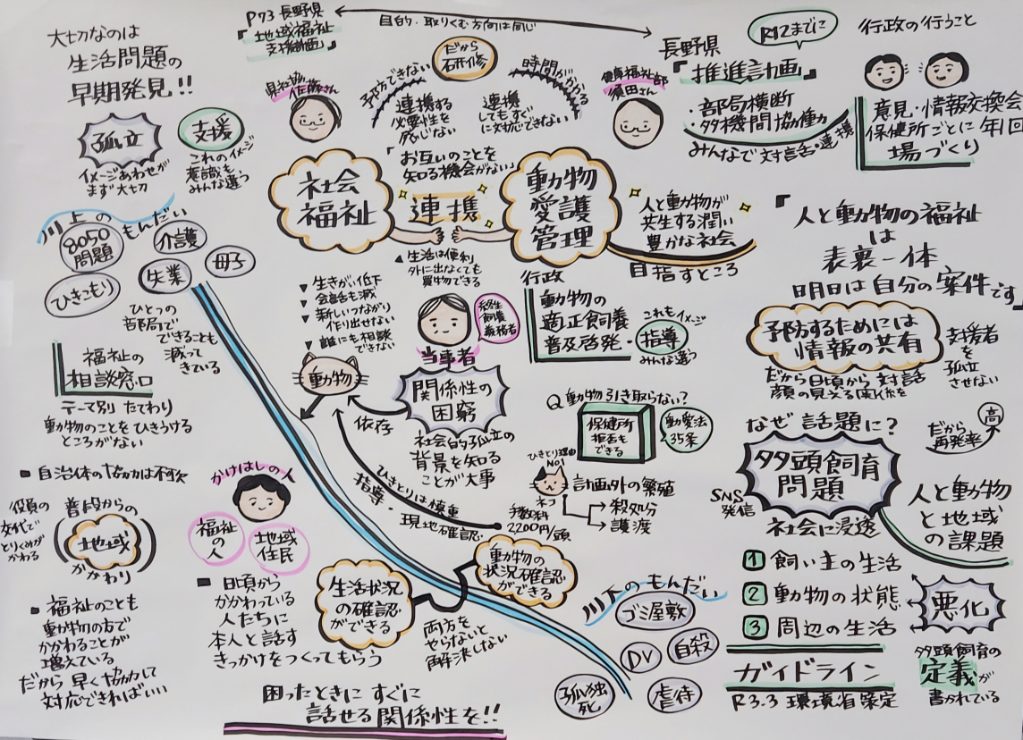 大切なのは
生活問題の
早期発見!!
P73 長野県
『地域福祉
支援計画』
目的・取りくむ方向は同じ
長野県
R12までに
『推進計画』
・部局横断
・多機関協働
みんなで対話・連携
行政の行うこと
意見・情報交換会
保健所ごとに年1回
場づくり
孤立
イメージあわせが
まず大切
支援
これのイメージ
意識も
みんな違う
県社協
佐藤さん
予防できない
だから
研修
時間がかかる
連携する
必要性を
感じない
連携
してもすぐ
に対応できない
健康福祉部
須田さん
お互いのことを
知る機会がない
社会
福祉
連携
動物
愛護
管理
人と動物が
共生する潤い
豊かな社会
目指すところ
『人と動物の福祉
は
表裏一体
明日は自分の案件です』
川上のもんだい
8050
問題
介護
母子
失業
ひきこもり
ひとつの
部局で
できることも
減って
きている
福祉の
相談窓口
テーマ別 たてわり
動物のことをひきうける
ところがない
▲生活は便利
外に出なくても
買物できる
▼生きがい低下
▼会話も減
▼新しいつながり
作り出せない
▼誰にも相談
できない
終生
飼養
義務者
当事者
動物
依存
関係性の
困窮
社会的孤立の
背景を知る
ことが大事
行政
動物の
適正飼養
普及啓発・
指導
これもイメージ
みんな違う
Q 動物引き取らない?
保健所
拒否も
できる
動愛法
35条
ひきとり理由
No1
ネコ
計画外の繁殖
→殺処分
→譲渡
手数料
2200円/頭
ひきとりは慎重
指導・現地確認
予防するためには
情報の共有
だから日頃から対話
顔の見える関係を
支援者
を
孤立
させない
なぜ話題に?
多頭飼育
問題
SNS
発信
社会に浸透
高
だから
再発率
人と動物
と地域
の課題
1 飼い主の生活
2 動物の状態
3 周辺の生活
悪化
ガイドライン
R3.3 環境省策定
多頭飼育の
定義が
書かれている
■自治体の協力は不可欠
役員の
交代で
とりくみが
かわる
普段からの
地域
かかわり
■福祉のことも
動物の方で
かかわることが
増えている
だから早く協力して
対応できればいい
かけはしの人
福祉
の人
地域
住民
■日頃から
かかわっている
人たちに
本人と話す
きっかけをつくってもらう
生活状況
の確認
ができる
動物の
状況確認
ができる
両方を
やらないと
解決しない
困ったときにすぐに
話せる関係性を!!
川下のもんだい
ゴミ屋敷
DV
自殺
孤独
死
虐待